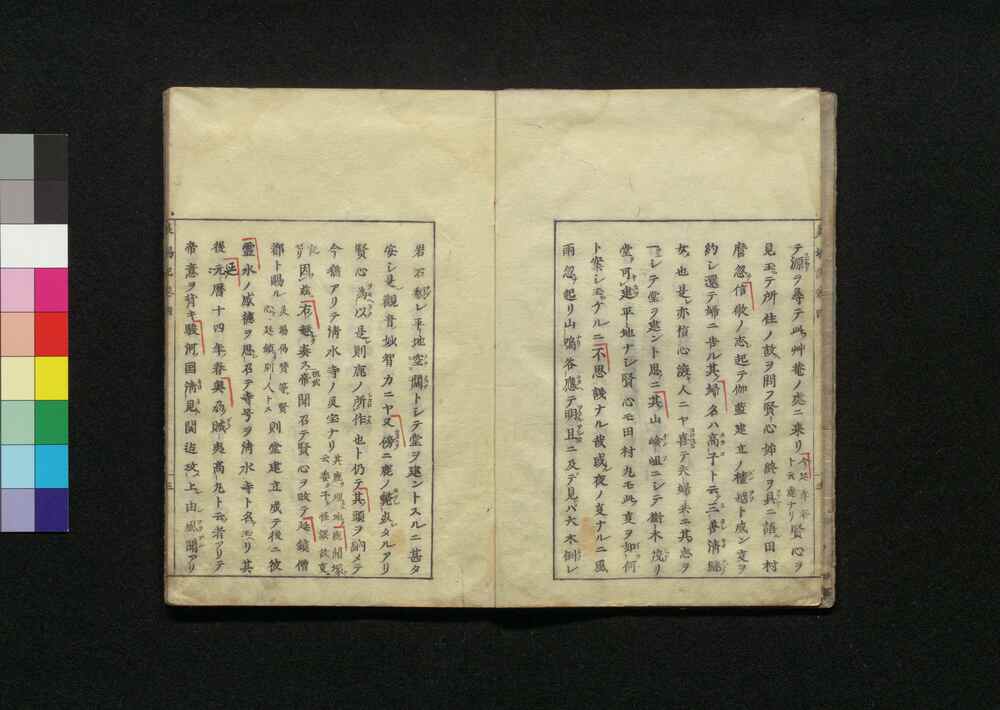 テ源ヲ尋テ此艸菴ノ處ニ来リ 賢心ヲ
見玉テ所住ノ故ヲ問フ賢心始終ヲ具ニ語田村
麿忽信敬ノ志起テ伽藍建立ノ檀越ト成ン事ヲ
約シ還テ婦ニ告ル其婦名ハ高子ト云ノ三善清継
女也是亦信心議人ニヤ喜テ夫婦共ニ其志ヲ
一シテ堂ヲ建ント思ニ其山嶮岨ニシテ樹木茂リ
堂可建平地ナシ賢心モ田村丸モ此事ヲ如何
ト案シモケルニ不思議ナル哉或夜ノ事ナルニ風
雨忽起リ山鳴谷應テ明旦ニ及テ見バ大木倒レ
岩石 レ平地空闊トシテ堂ヲ建ントスルニ甚タ
安シ是觀音妙智力ニヤ又傍ニ鹿ノ 臥タルアリ
賢心為以是則鹿ノ所作也ト仍テ其頭ヲ納メテ
今猶アリテ清水寺ノ什宝ナリ
因茲右趣奏ス帝聞召テ賢心ヲ改テ延鎮僧
都ト賜ル 則堂建立成テ後ニ彼
靈水ノ威徳ヲ思召テ寺号ヲ清水寺ト名 リ其
後延暦十四年春奥 賊夷高丸ト云者アリテ
帝意ヲ背キ駿河国清見関迄攻上由風聞アリ